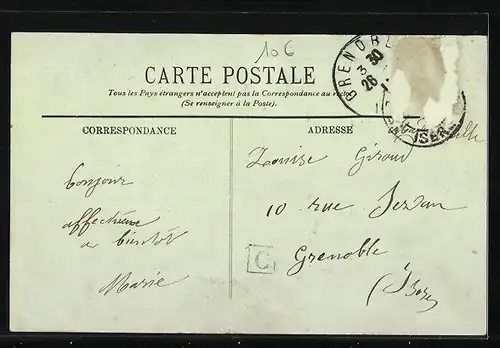 106
CARTE POSTALE
Tous les Pays étrangers n'acceptent pas la Correspondance au recto
(Se renseigner à la Poste).
GRENOBL
3 30
26
ISERE
CORRESPONDANCE
ADRESSE
Bonjour
affectueux
a bientôt
Marie
Louise Giroud
10 rue Servan
Grenoble
(Isère)
C